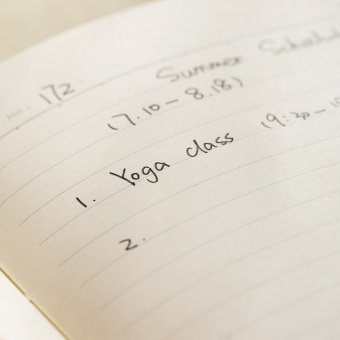 no. 172.
Summer Schedul
(7.10 - 8.18)
1. Yoga class (9:30 - 10
2.